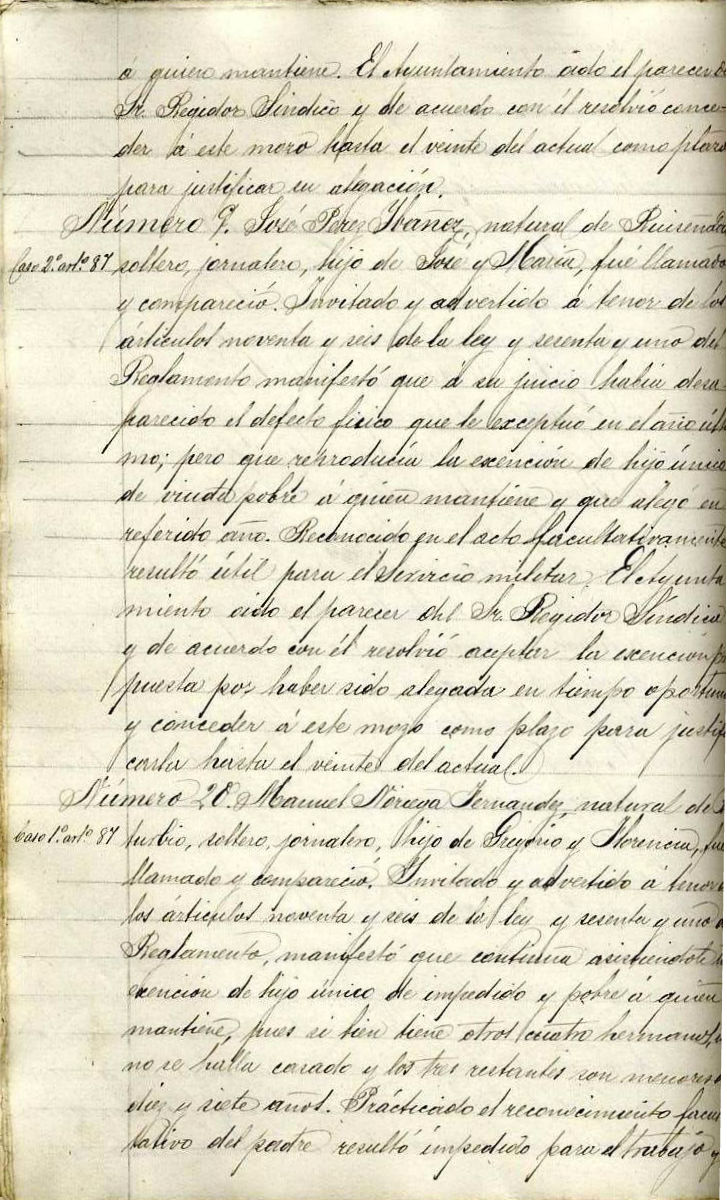 á quien mantiene. El Ayuntamiento oido el parecer
Sr. Regidor Síndico y de acuerdo con él resolvió conce-
der á este mozo hasta el veinte del actual como plazo
para justificar su alegación.
Número 9. José Perez Ybanez, natural de
Caso 2º artº 87 soltero, jornalero, hijo de José y María, fué llamado
y compareció. Invitado y advertido á tenor de los
artículos noventa y seis de la ley y sesenta y uno del
Reglamento manifestó que á su juicio había desa-
parecido el defecto fisico que le exceptuó en el año últi
mo; pero que reproducía la exención de hijo único
de viuda pobre á quien mantiene y que alegó en
referido año. Reconocido en el acto facultativamente
resultó útil para el servicio militar. El Ayunta
miento oido el parecer del Sr. Regidor Síndico
y de acuerdo con él resolvió aceptar la exención
puesta por haber sido alegada en tiempo oportuno
y conceder á este mozo como plazo para justifi
carla hasta el veinte del actual.
Número 20. Manuel Noriega Fernandez, natural de
Caso 1º artº 87 turbio, soltero, jornalero, hijo de Gregorio y Florencia, fué
llamado y compareció. Invitado y advertido á tenor
los artículos noventa y seis de la ley y sesenta y uno
Reglamento, manifestó que continua asistiendole
exención de hijo único de impedido y pobre á quien
mantiene, pues si bien tiene otros cuatro hermanos,
no se halla casado y los tres restantes son menores
diez y siete años. Prácticado el reconocimiento facul
tativo del padre resultó impedido para el trabajo y